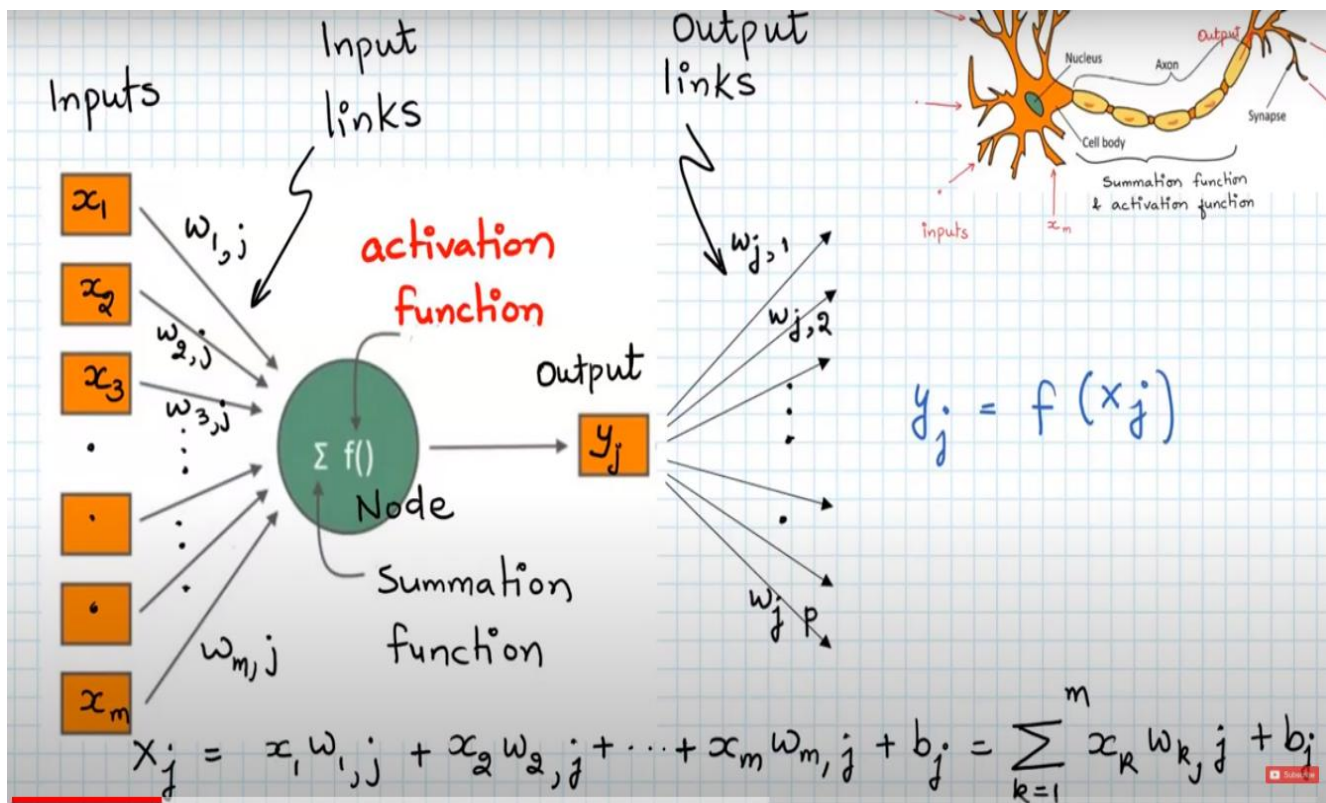 Inputs
Input
links
Output
links
x₁
x₂
x₃
xₘ
w₁,j
w₂,j
w₃,j
wₘ,j
activation
function
Σ f()
Node
Summation
function
Output
yⱼ
wⱼ,₁
wⱼ,₂
wⱼ p
yⱼ = f (Xⱼ)
Output
Nucleus
Axon
Synapse
Cell body
Summation function
& activation function
inputs
xₘ
Xⱼ = x₁w₁,j + x₂w₂,j + ... + xₘwₘ,j + bⱼ = Σ_{k=1}^{m} xₖwₖ,j + bⱼ
Subscribe